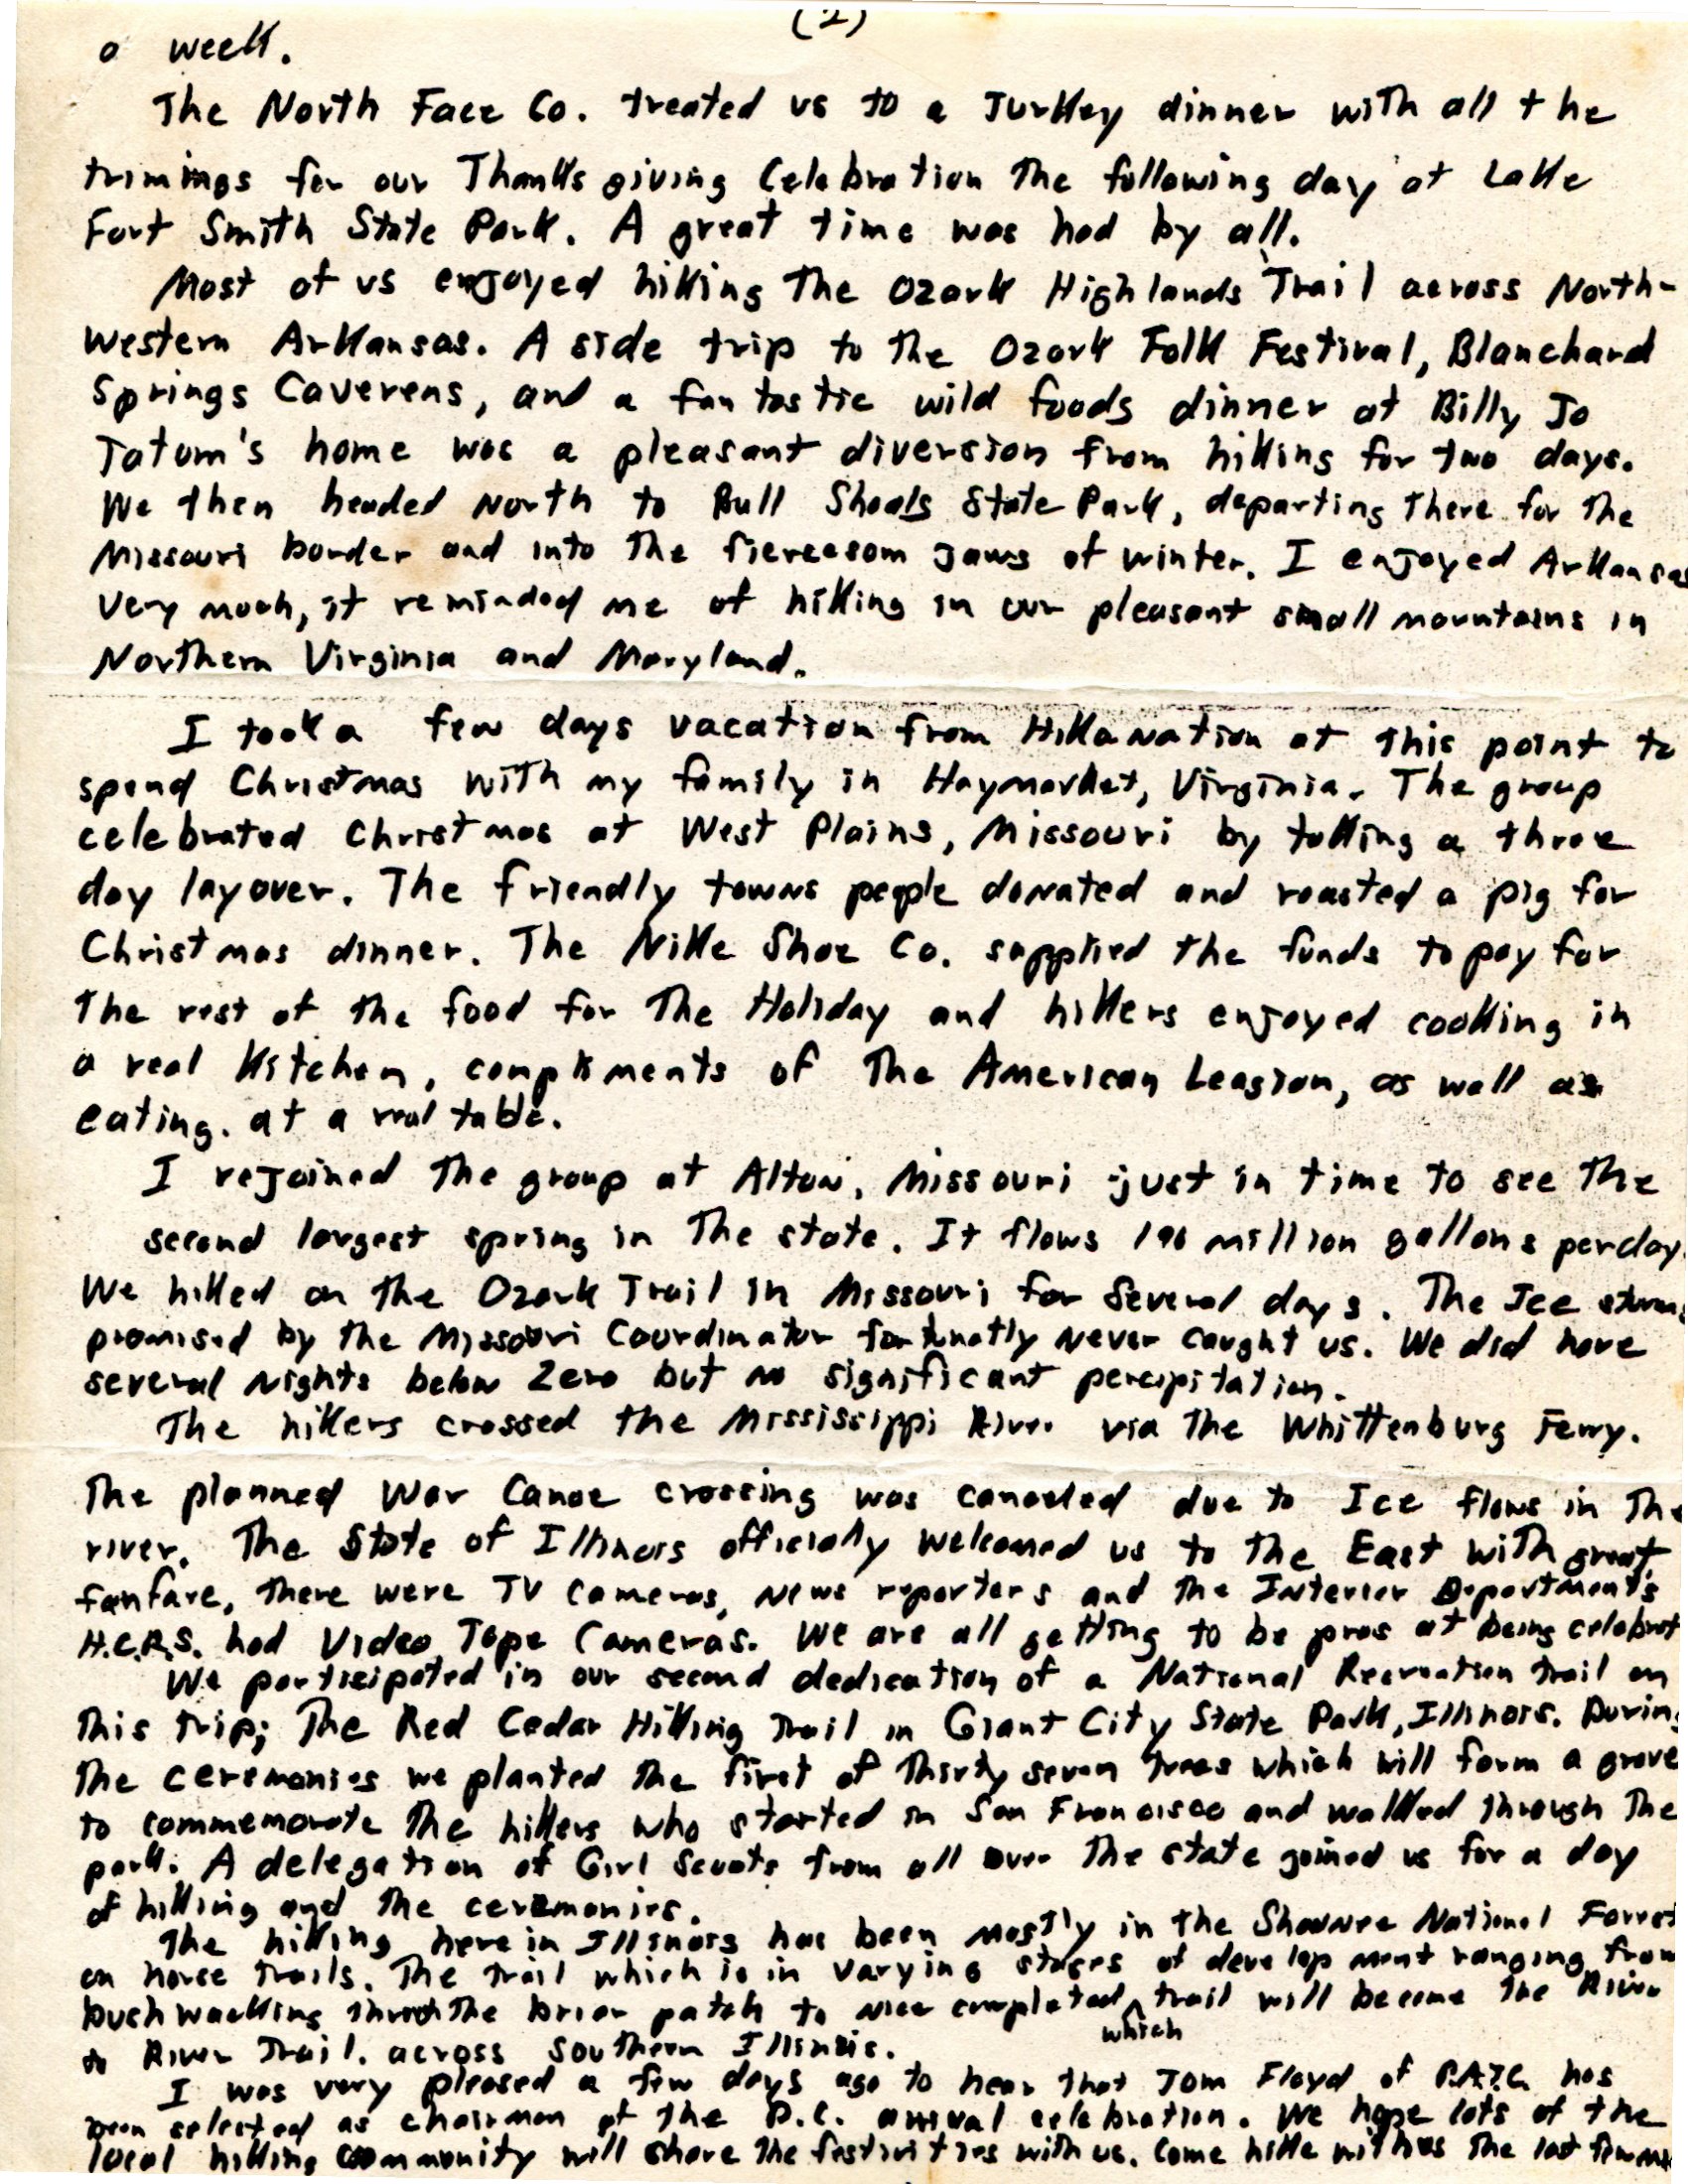 (2)
a week.
The North Face Co. treated us to a Turkey dinner with all the
trimings for our Thanksgiving Celebration the following day at Lake
Fort Smith State Park. A great time was had by all.
Most of us enjoyed hiking the Ozark Highlands Trail across North-
western Arkansas. A side trip to the Ozark Folk Festival, Blanchard
Springs Caverens, and a fantastic wild foods dinner at Billy Jo
Tatum's home was a pleasant diversion from hiking for two days.
We then headed North to Bull Shoals State Park, departing there for the
Missouri border and into the fiercesom jaws of winter. I enjoyed Arkansas
very much, it reminded me of hiking in our pleasant small mountains in
Northern Virginia and Maryland.
I took a few days vacation from HikaNation at this point to
spend Christmas with my family in Haymarket, Virginia. The group
celebrated Christmas at West Plains, Missouri by taking a three
day layover. The friendly towns people donated and roasted a pig for
Christmas dinner. The Nike Shoe Co. supplied the funds to pay for
the rest of the food for the Holiday and hikers enjoyed cooking in
a real kitchen, compliments of the American Leagion, as well as
eating. at a real table.
I rejoined the group at Alton, Missouri just in time to see the
second largest spring in the state. It flows million gallons perday.
We hiked on the Ozark Trail in Missouri for several days. The Ice storms
promised by the Missouri Coordinator fortunatly never caught us. We did have
several nights below Zero but no significant percipitation.
The hikers crossed the Mississippi River via the Whittenburg Ferry.
The planned War Canoe crossing was canceled due to Ice flows in the
river. The State of Illinois officially welcomed us to the East with great
fanfare, there were TV cameras, news reporters and the Interior Department's
H.C.R.S. had Video Tape Cameras. We are all getting to be pros at being celebrat
We participated in our second dedication of a National Recreation trail on
this trip; The Red Cedar Hiking Trail in Giant City State Park, Illinois. During
the ceremonies we planted the first of thirty seven trees which will form a grove
to commemorate the hikers who started in San Francisco and walked through the
park. A delegation of Girl Scouts from all over the state joined us for a day
of hiking and the ceremonies.
The hiking here in Illinois has been mostly in the Shawnee National Forrest
on horse trails. The trail which is in varying stages of development ranging from
bushwacking through the briar patch to nice completed trail will become the River
which
to River Trail. across Southern Illinois.
I was very pleased a few days ago to hear that Tom Floyd of P.A.T.C. has
been selected as chairman of the D.C. arrival celebration. We hope lots of the
local hiking community will share the festivities with us. Come hike with us the last few